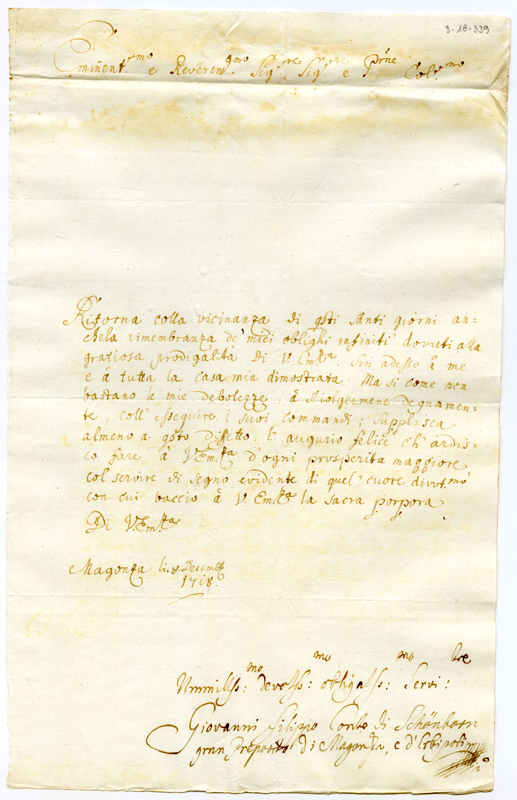 3-18-339
Eminent.mo e Reveren.mo Sig.re Sig.re e P'rne Col.mo
Ritorna colla vicinanza di q'sti s'anti giorni an=
che la rimembranza de' miei oblighi infiniti dovuti alla
gratiosa prodigalità di V. Em.za Sin adesso à me
e à tutta la casa mia dimostrata. Ma si come non
bastano le mie debolezze, à sciorgermene degnamen-
te, coll' esseguire i suoi commandi; supplisca
almeno a q'sto difetto. l' augurio felice ch' ardis-
co fare à V. Em.za d'ogni prosperità maggiore
col servire di segno evidente di quel cuore divot.mo
con cui baccio à V. Em.za la sacra porpora
Di V. Em.za
Magonza li 8 Decemb.
1718.
Ummiliss:mo devoss:mo obligass:mo Servi:tre
Giovanni Filippo Conte di Schönborn
gran preposito di Magonza, e d'Erbipoli